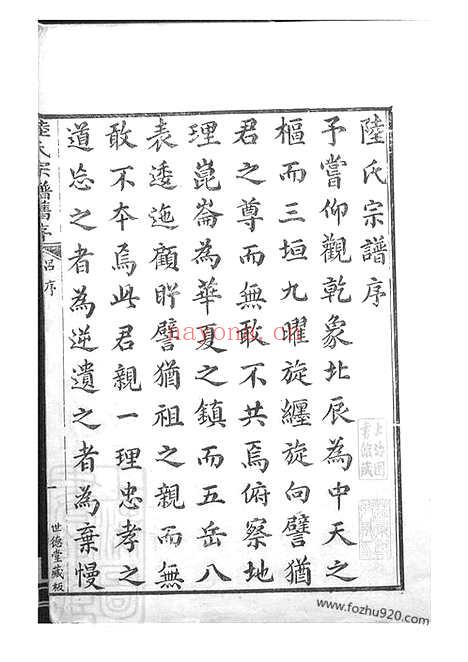 陸氏宗譜序
予嘗仰觀乾象北辰為中天之
樞而三垣九曜旋纒旋向譬猶
君之尊而無敢不共焉俯察地
理崑崙為華夏之鎮而五岳八
表逶迤顧盻譬猶祖之親而無
敢不本焉此君親一理忠孝之
道忘之者為逆遺之者為棄慢
陸氏宗譜舊序
呂序
世德堂藏板
上海圖
書館藏
nayong.cn
www.fozhu920.com